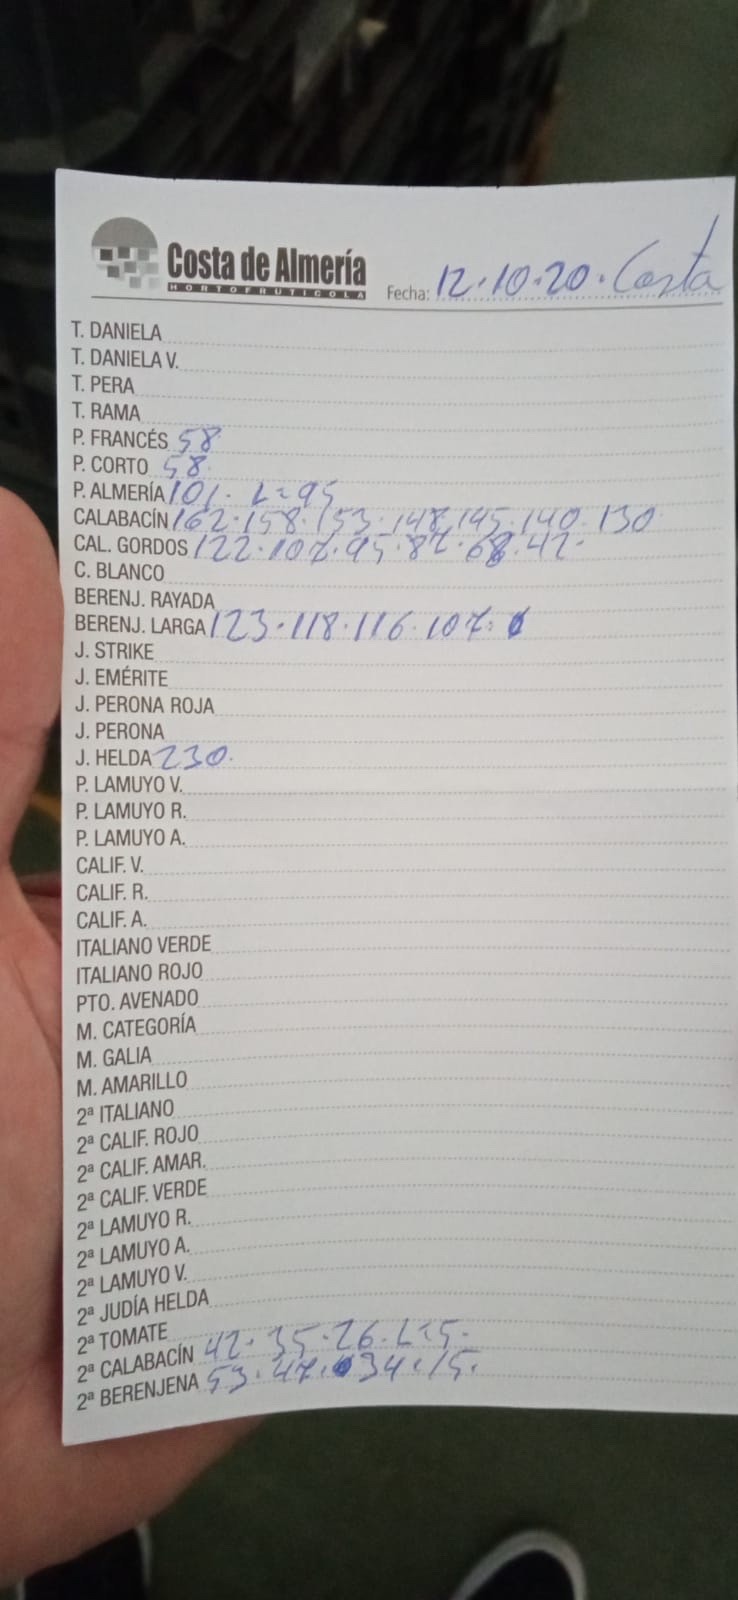 Costa de Almería
HORTOFRUTICOLA
Fecha: 12.10.20. Costa
T. DANIELA
T. DANIELA V.
T. PERA
T. RAMA
P. FRANCÉS 58
P. CORTO 58.
P. ALMERÍA 101. L=95
CALABACÍN 162.158.153.148.145.140.130
CAL. GORDOS 122.107.95.87.68.42.
C. BLANCO
BERENJ. RAYADA
BERENJ. LARGA 123.118.116.107.
J. STRIKE
J. EMÉRITE
J. PERONA ROJA
J. PERONA
J. HELDA 230.
P. LAMUYO V.
P. LAMUYO R.
P. LAMUYO A.
CALIF. V.
CALIF. R.
CALIF. A.
ITALIANO VERDE
ITALIANO ROJO
PTO. AVENADO
M. CATEGORÍA
M. GALIA
M. AMARILLO
2ª ITALIANO
2ª CALIF. ROJO
2ª CALIF. AMAR.
2ª CALIF. VERDE
2ª LAMUYO R.
2ª LAMUYO A.
2ª LAMUYO V.
2ª JUDÍA HELDA
2ª TOMATE
2ª CALABACÍN 42.35.26.L=5.
2ª BERENJENA 53.47.34.15.